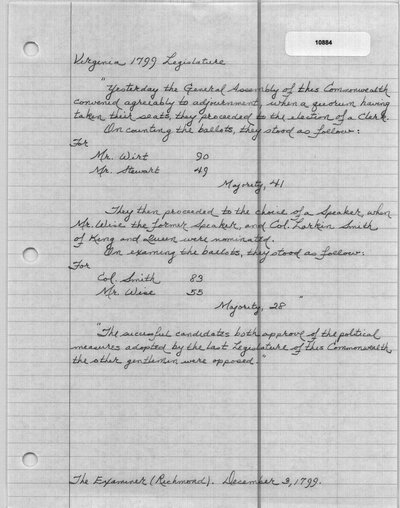 10884
Virginia 1799 Legislature
"Yesterday the General Assembly of this Commonwealth
convened agreiably to adjournment, when a quorum having
taken their seats, they proceeded to the election of a Clerk.
On counting the ballots, they stood as follow:
For
Mr. Wirt 90
Mr. Stewart 49
Majority, 41
They then proceeded to the choice of a Speaker, when
Mr. Wise the former Speaker, and Col. Larkin Smith
of King and Queen were nominated.
On examing the ballots, they stood as follow:
For
Col. Smith 83
Mr. Wise 55
Majority, 28 "
"The sucessful candidates both approve of the political
measures adopted by the last Legislature of this Commonwealth,
the other gentlemen were opposed."
The Examiner (Richmond). December 3, 1799.